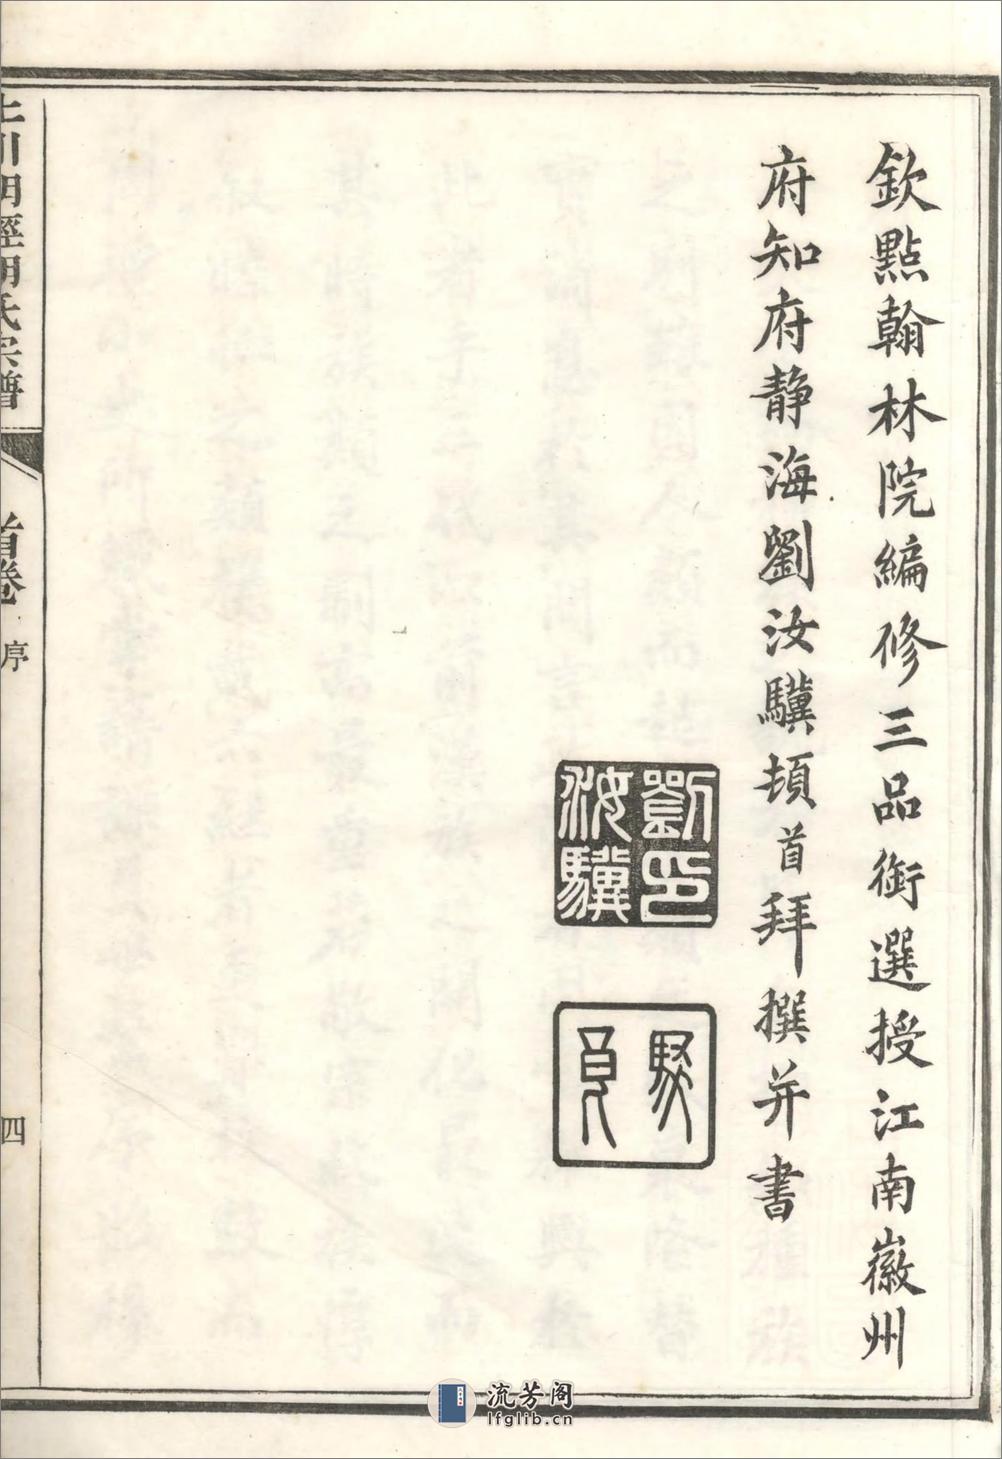 欽點翰林院編修三品銜選授江南徽州
府知府靜海劉汝驥頓首拜撰并書
劉印
汝驥
上川明經胡氏宗譜
首卷
序
四
流芳阁
lfglib.cn